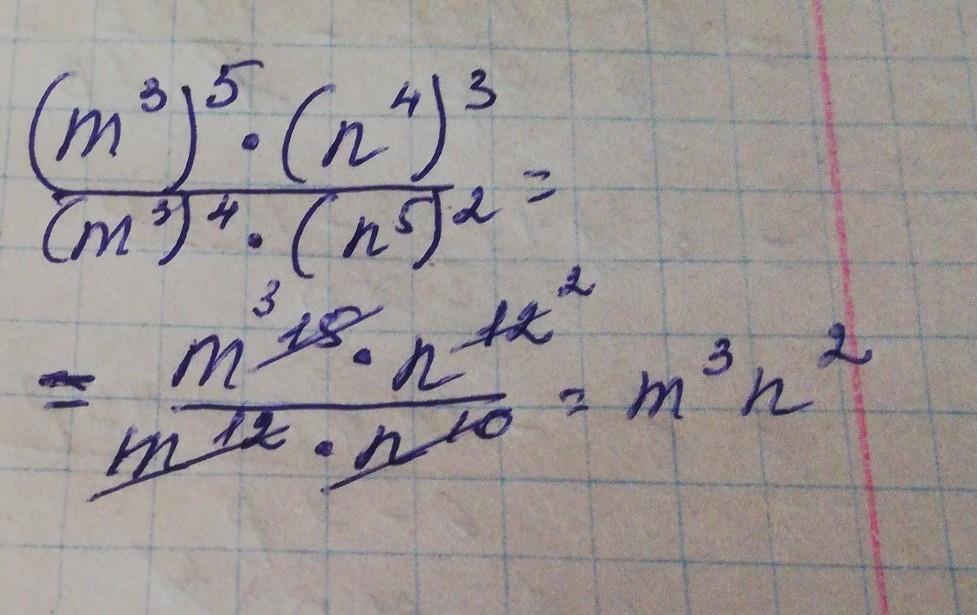 (m³)⁵ · (n⁴)³
(m³)⁴ · (n⁵)² =
= m³ ¹⁵ · n¹² ²
m¹² · n¹⁰ = m³ n²